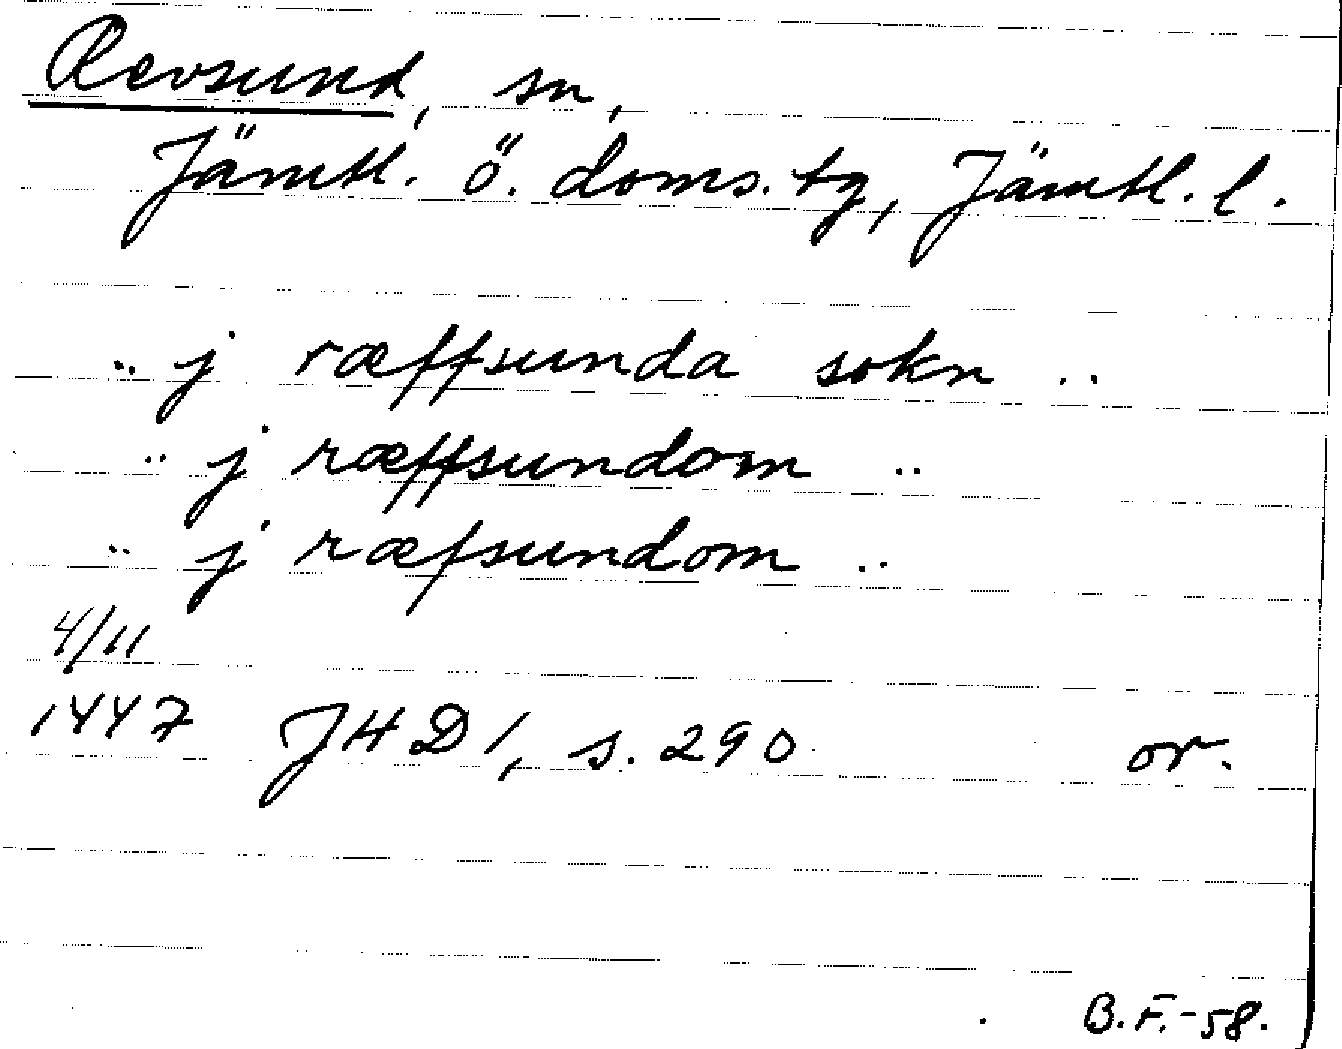 Revsund, sn,
Jämtl. ö. doms. tg, Jämtl. l.
.. j ræffsunda sokn ..
.. j ræffsundom ..
.. j ræfsundom ..
4/11
1447 JHD 1, s. 290 or.
B.F.-58.